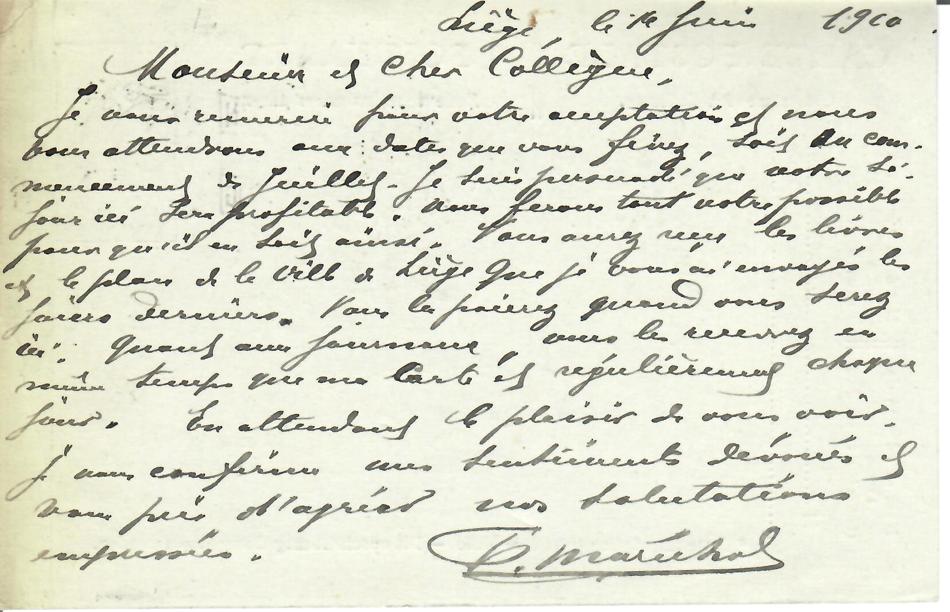 Liège, le 1r Juin 1910.
Monsieur et Cher Collègue,
Je vous remercie pour votre acceptation et nous
vous attendrons aux dates que vous fixez, soit au com-
mencement de Juillet. Je suis persuadé que votre sé-
jour ici sera profitable. Nous ferons tout notre possible
pour qu'il en soit ainsi. Vous aurez reçu les livres
et le plan de la Ville de Liège que je vous ai envoyés les
jours derniers. Vous les paierez quand vous serez
ici. Quant aux journaux, vous les recevrez en
même temps que ma Carte et régulièrement chaque
jour. En attendant le plaisir de vous voir,
je vous confirme mes sentiments dévoués et
vous prie d'agréer nos salutations
empressées.
Maréchal